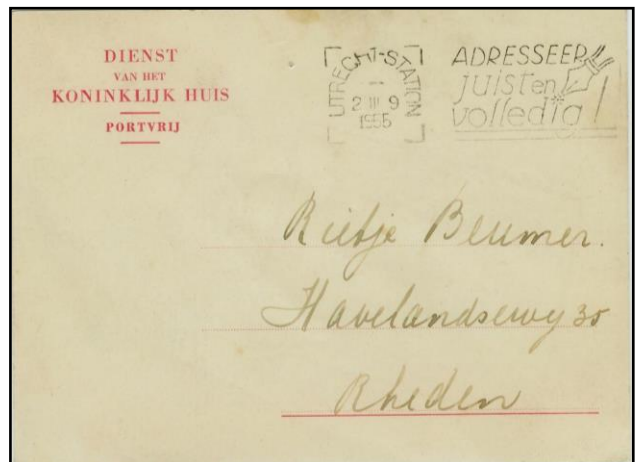 DIENST
VAN HET
KONINKLIJK HUIS
PORTVRIJ
UTRECHT-STATION
2 III 9
1955
ADRESSEER
juist en
volledig!
Rietje Beumer.
Havelandseweg 30
Rheden